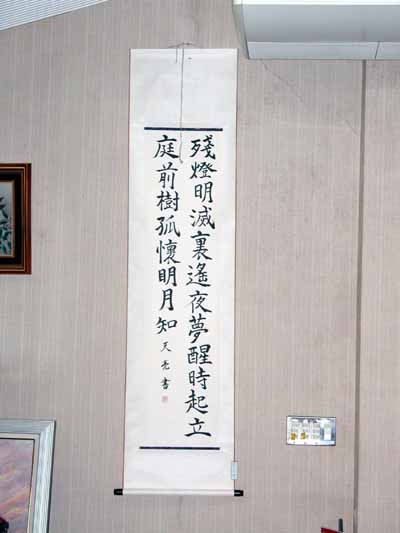 殘燈明滅裏遙夜夢醒時起立
庭前樹孤懷明月知
天亮書